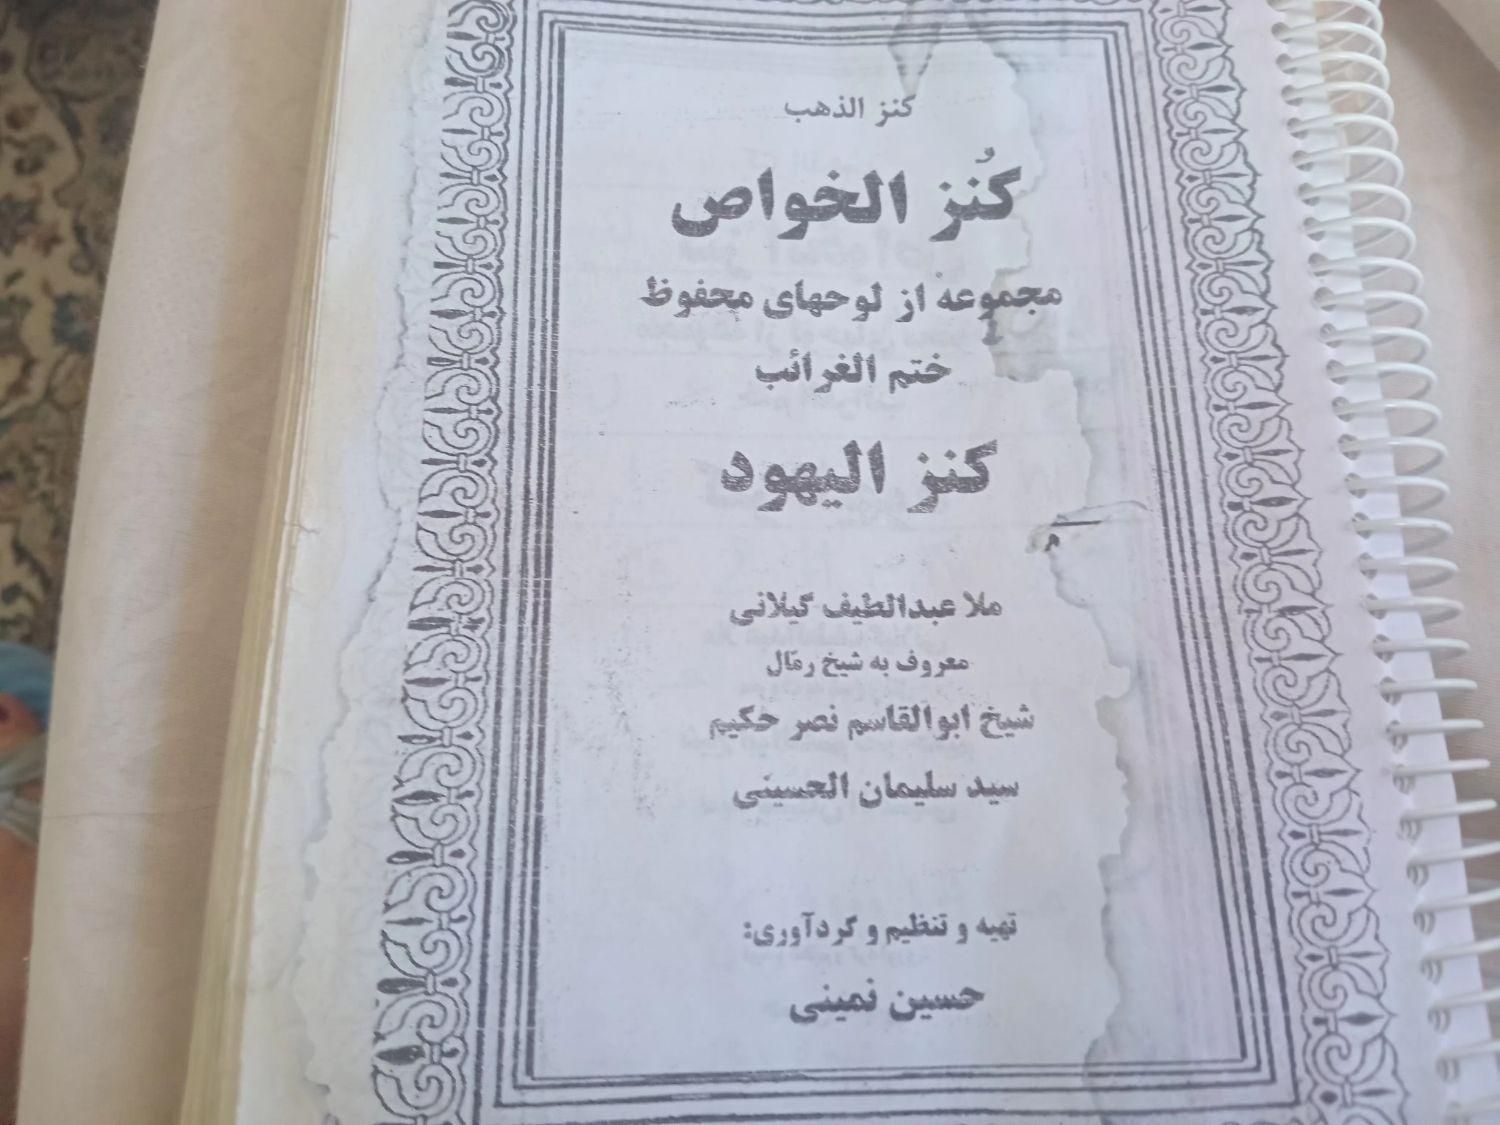 کنز الذهب
کُنز الخواص
مجموعه از لوحهای محفوظ
ختم الغرائب
کنز الیهود
م
ملا عبدالطیف گیلانی
معروف به شیخ رمّال
شیخ ابوالقاسم نصر حکیم
سید سلیمان الحسینی
تهیه و تنظیم و گردآوری:
حسین نمینی